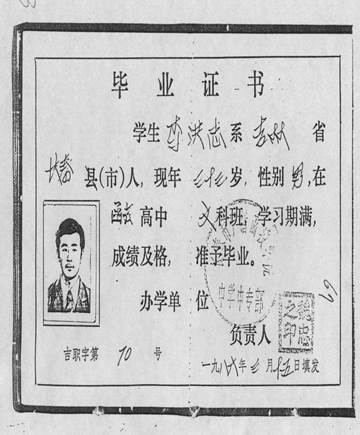 毕业证书
学生 李洪志 系 吉林 省
长春 县(市)人, 现年 岁, 性别 男, 在
函授 高中 文 科班, 学习期满,
成绩及格, 准予毕业。
办学单位
中学中专部
负责人
之印
言职字第 70 号
一九八 年 月 十五 日填发